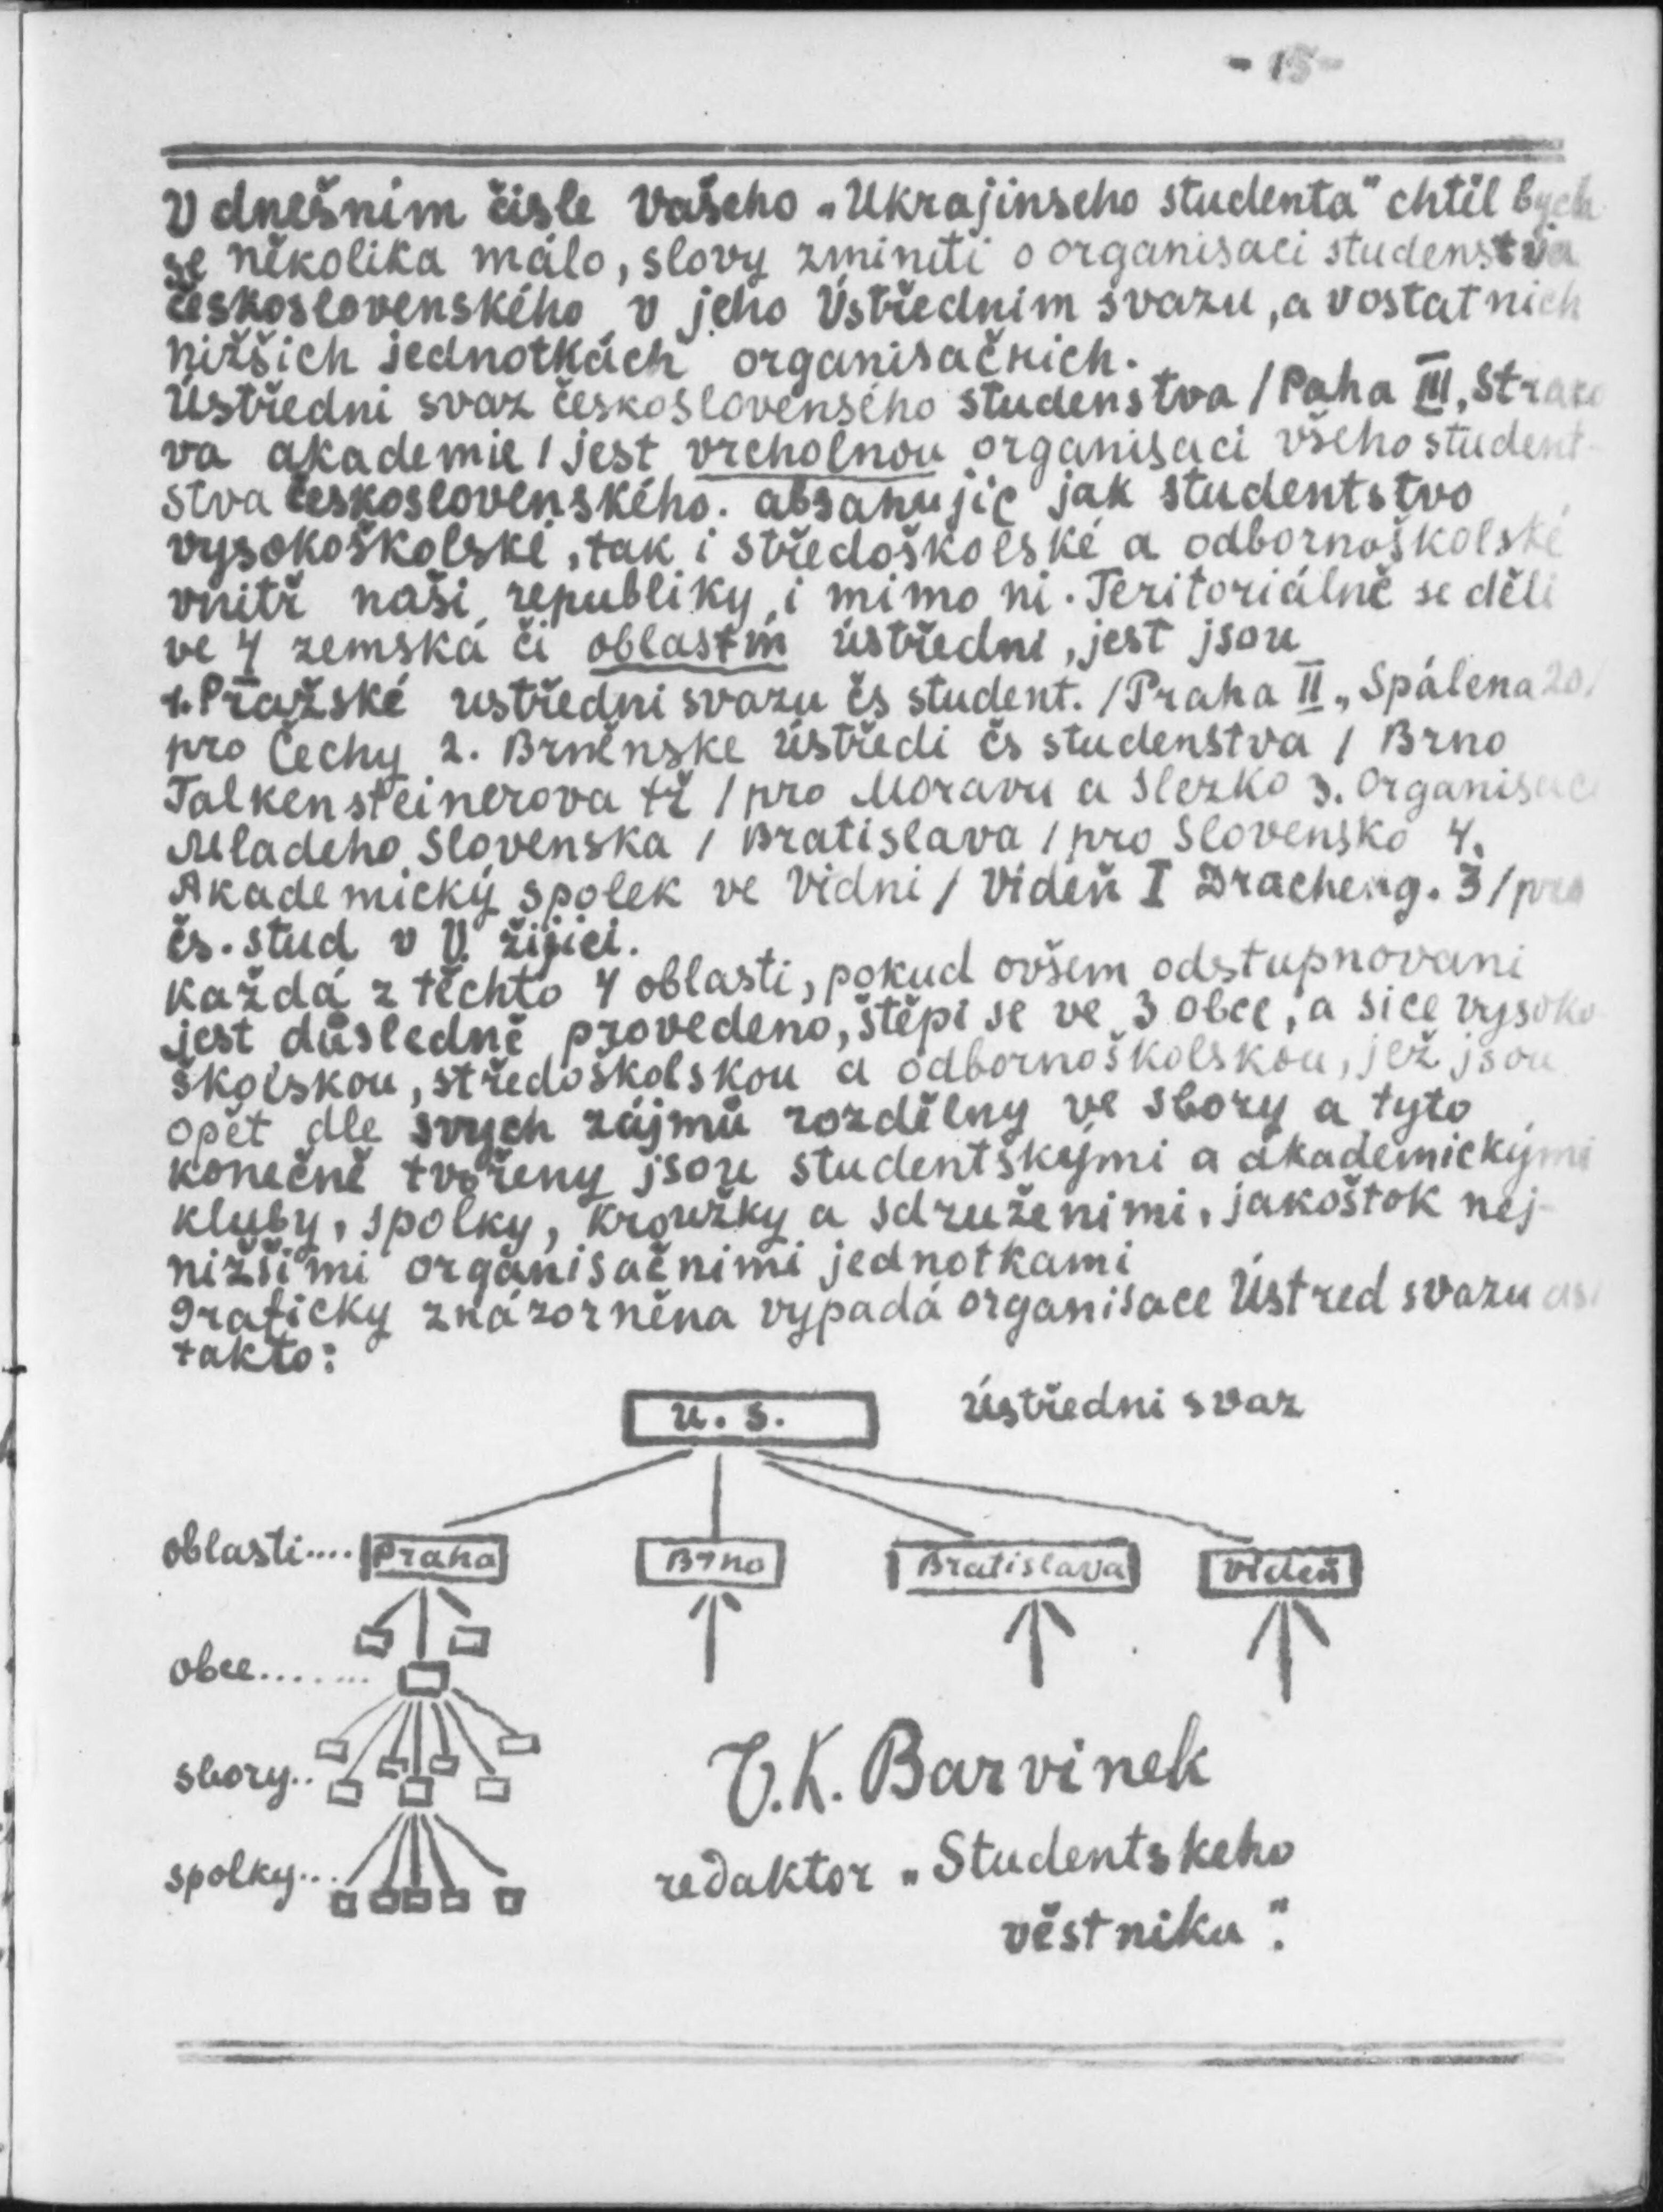 - 15 -
V dnešnim čisle Vašeho „Ukrajinseho studenta" chtěl bych
se několika málo, slovy zminiti o organisaci studenstva
československého v jeho Ústřednim svazu, a v ostatnich
nižšich jednotkách organisačnich.
Ústředni svaz československého studenstva / Paha III, Strako
va akademie / jest vrcholnou organisaci všeho student-
stva československého. absahujic jak studentstvo
vysokoškolské, tak i středoškolské a odbornoškolské
vnitř naši republiky, i mimo ni. Teritoriálně se děli
ve 4 zemská či oblastm ústředni, jest jsou
1. Pražské ustředni svazu čs student. / Praha II., Spálena 20/
pro Čechy 2. Brněnske ústředi čs studenstva / Brno
Talkensteinerova tř / pro Moravu a Slezko 3. Organisaci
Mladeho Slovenska / Bratislava / pro Slovensko 4.
Akademický spolek ve Vidni / Videň I Dracheng. 3 / pro
čs. stud v V. žijici.
Každá z těchto 4 oblasti, pokud ovšem odstupnovani
jest důsledně provedeno, štěpi se ve 3 obce, a sice vysoko
školskou, středoškolskou a odbornoškolskou, jež jsou
opět dle svych zájmů rozdělny ve sbory a tyto
konečně tvořeny jsou studentskými a akademickými
kluby, spolky, kroužky a sdruženimi, jakoštok nej-
nižšimi organisačnimi jednotkami
Graficky znázorněna vypadá organisace Ústred svazu asi
takto:
U. S. Ústředni svaz
oblasti.... Praha Brno Bratislava Videň
obce........
sbory..
spolky...
V. K. Barvinek
redaktor „Studentskeho
věstniku".